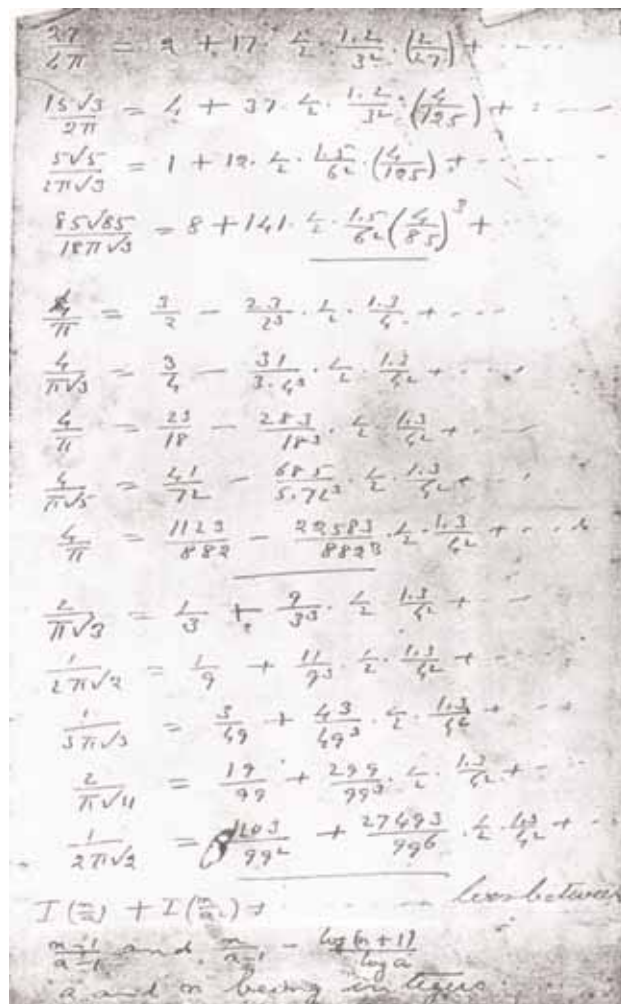 27/4π = 2 + 17 · 1/2 · 1.2/3² · (2/27) + ....
15√3/2π = 4 + 37 · 1/2 · 1.2/3² · (4/125) + ....
5√5/2π√3 = 1 + 12 · 1/2 · 1.5/6² · (4/125) + ....
85√85/18π√3 = 8 + 141 · 1/2 · 1.5/6² (4/85)³ + ....
4/π = 3/2 − 23/2³ · 1/2 · 1.3/4² + ....
4/π√3 = 3/4 − 31/3.4³ · 1/2 · 1.3/4² + ....
4/π = 23/18 − 283/18³ · 1/2 · 1.3/4² + ....
4/π√5 = 41/72 − 685/5.72³ · 1/2 · 1.3/4² + ....
4/π = 1123/882 − 22583/882³ · 1/2 · 1.3/4² + ....
2/π√3 = 1/3 + 9/3³ · 1/2 · 1.3/4² + ....
1/2π√2 = 1/9 + 11/9³ · 1/2 · 1.3/4² + ....
1/3π√3 = 3/49 + 43/49³ · 1/2 · 1.3/4² + ....
2/π√11 = 19/99 + 299/99³ · 1/2 · 1.3/4² + ....
1/2π√2 = 1103/99² + 27493/99⁶ · 1/2 · 1.3/4² + ....
I(n/a) + I(n/a²) + .... between
n−1/a−1 and n/a−1 − log(n+1)/log a
a and n being integers.